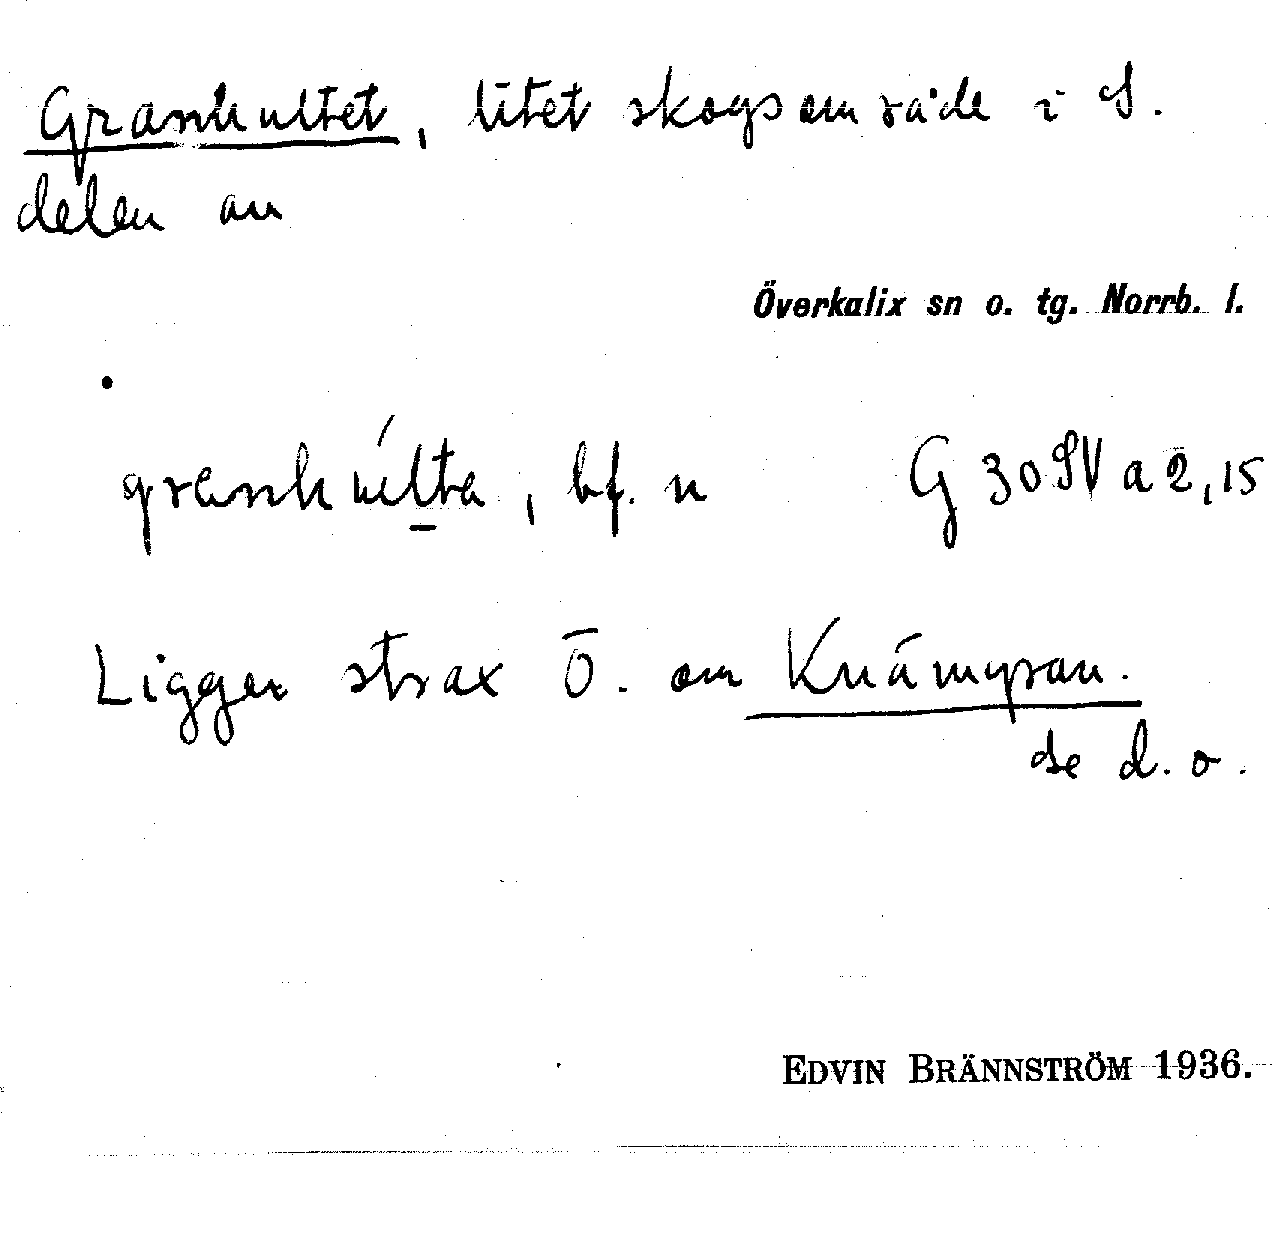 Granhultet, litet skogsområde i S.
delen av
Överkalix sn o. tg. Norrb. l.
granhúl̲ta, bf. n G 30 SV a 2,15
Ligger strax Ö. om Knämyran.
se d. o.
EDVIN BRÄNNSTRÖM 1936.